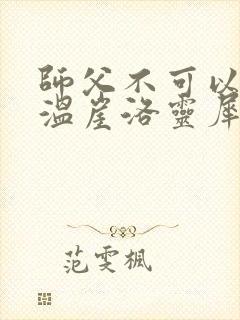 師父不可以
溫崖洛靈犀
范雯楓